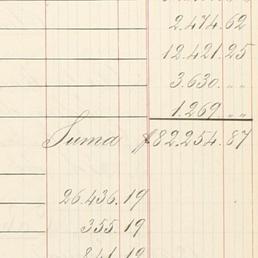 2.474.62
12.421.25
3.630. „ „
1.269 „ „
Suma $82.254.87
26.436.19
355.19
841.19